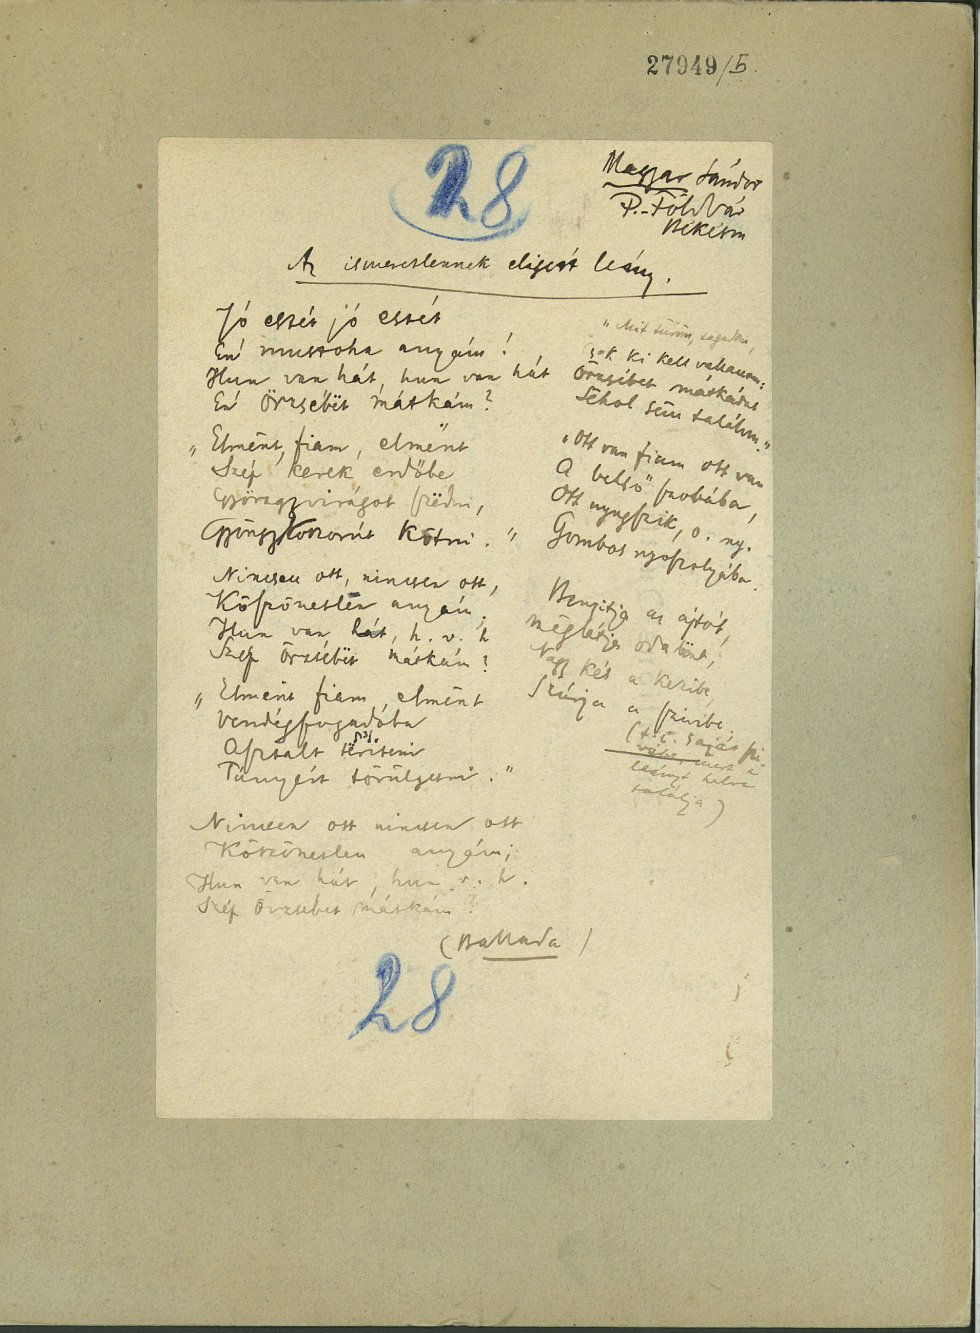 27949/5
28
Magyar Sándor
P.-Földvár
Békésm
Az ismeretlennek eligért leány.
Jó estét jó estét
Én mustoha anyám!
Hun van hát, hun van hát
Én Örzsébet mátkám?
„Elmënt, fiam, elmënt
Szép kerek erdőbe
Gyöngyvirágot szëdni,
Gyöngykoszorút kötni."
Nincsen ott, nincsen ott,
Köszönetlen anyám,
Hun van hát, h. v. h
Szép Örzsébet mátkám?
„Elmënt fiam, elmënt
Vendégfogadóba
Asztalt tëríteni
Tányért törülgetni."
Nincsen ott nincsen ott
Köszönetlen anyám;
Hun van hát, hun v. h.
Szép Örzsébet mátkám?
(Ballada)
28
„Mit tűröm, tagadom,
sok ki kell vallanom;
Örzsébet mátkádat
Sehol sem találom."
„Ott van fiam ott van
A belső szobába,
Ott nyugszik, o. ny.
Gombos nyoszolyába.
Benyitja az ajtót,
Mëglátja odabënt,
Nagy kés a kezibe,
Szúrja a szivibe
(t. i. saját szi-
vébe mert a
leányt halva
találja)